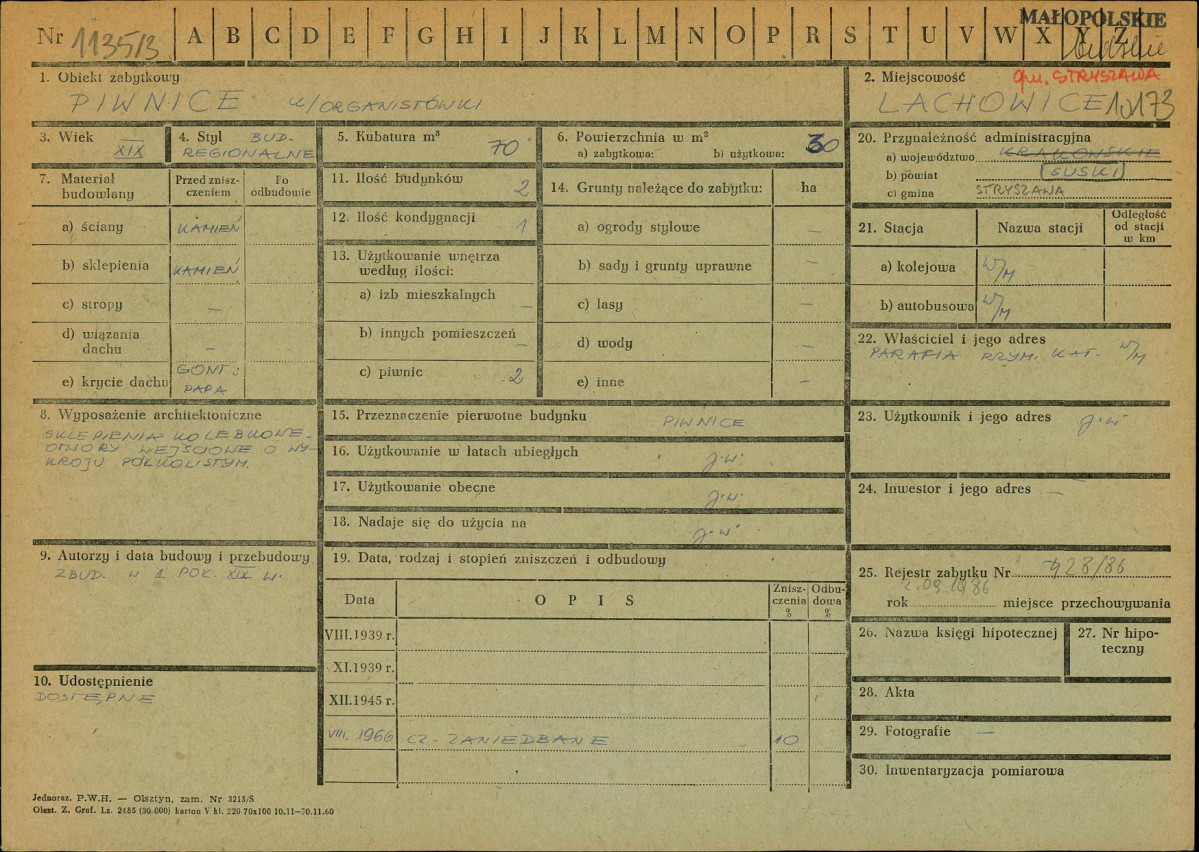 Nr 1135/3 A B C D E F G H I J K L M N O P R S T U V W X Y Z
MAŁOPOLSKIE
1. Obiekt zabytkowy
PIWNICE k/ORGANISTÓWKI
2. Miejscowość gm. STRYSZAWA
LACHOWICE 173
3. Wiek
XIX
4. Styl BUD-
REGIONALNE
5. Kubatura m³
70
6. Powierzchnia w m²
a) zabytkowa: b) użytkowa: 30
7. Materiał budowlany
Przed znisz-
czeniem
Po
odbudowie
a) ściany KAMIEŃ
b) sklepienia KAMIEŃ
c) stropy —
d) wiązania
dachu —
e) krycie dachu GONT:
PAPA
8. Wyposażenie architektoniczne
SKLEPIENIA KOLEBKOWE-
OTWORY WEJŚCIOWE O WY-
KROJU PÓŁKOLISTYM.
9. Autorzy i data budowy i przebudowy
ZBUD. W 1 POŁ. XIX W.
10. Udostępnienie
DOSTĘPNE
11. Ilość budynków 2
12. Ilość kondygnacji 1
13. Użytkowanie wnętrza
według ilości:
a) izb mieszkalnych —
b) innych pomieszczeń —
c) piwnic 2
14. Grunty należące do zabytku: ha
a) ogrody stylowe —
b) sady i grunty uprawne —
c) lasy —
d) wody —
e) inne —
15. Przeznaczenie pierwotne budynku PIWNICE
16. Użytkowanie w latach ubiegłych j.w.
17. Użytkowanie obecne j.w.
18. Nadaje się do użycia na j.w.
19. Data, rodzaj i stopień zniszczeń i odbudowy
Data OPIS Znisz-
czenia
% Odbu-
dowa
%
VIII.1939 r.
XI.1939 r.
XII.1945 r.
VIII. 1966 CZ-ZANIEDBANE 10
20. Przynależność administracyjna
a) województwo KRAKOWSKIE
b) powiat SUSKI
c) gmina STRYSZAWA
21. Stacja Nazwa stacji Odległość
od stacji
w km
a) kolejowa W/M
b) autobusowa W/M
22. Właściciel i jego adres
PARAFIA RZYM. KAT. W/M
23. Użytkownik i jego adres j.w
24. Inwestor i jego adres —
25. Rejestr zabytku Nr 428/86
rok 2.09.1986 miejsce przechowywania
26. Nazwa księgi hipotecznej
27. Nr hipo-
teczny
28. Akta
29. Fotografie —
30. Inwentaryzacja pomiarowa
Jednoraz. P.W.H. — Olsztyn, zam. Nr 3215/S
Olszt. Z. Graf. Lz. 2485 (30 000) karton V kl. 220 70x100 10.11—30.11.60